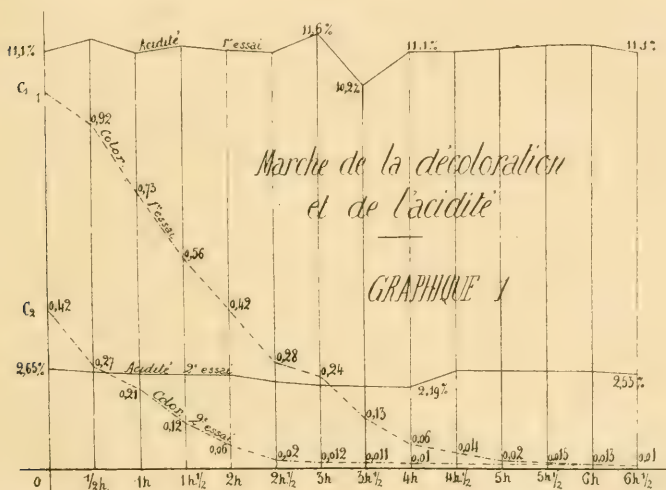 Acidité 1r essai
11,1%
11,6%
10,22
11,1%
11,1%
C1 1
0,92
Color 1r essai
0,73
0,56
0,42
0,28
0,24
0,13
0,06
0,04
0,02
0,015
0,013
0,01
Marche de la décoloration
et de l'acidité
GRAPHIQUE 1
C2
0,42
0,27
2,65%
Acidité 2e essai
2,19%
2,55%
0,21
Color 2e essai
0,12
0,06
0,02
0,012
0,011
0,01
0 1/2h 1h 1h1/2 2h 2h1/2 3h 3h1/2 4h 4h1/2 5h 5h1/2 6h 6h1/2